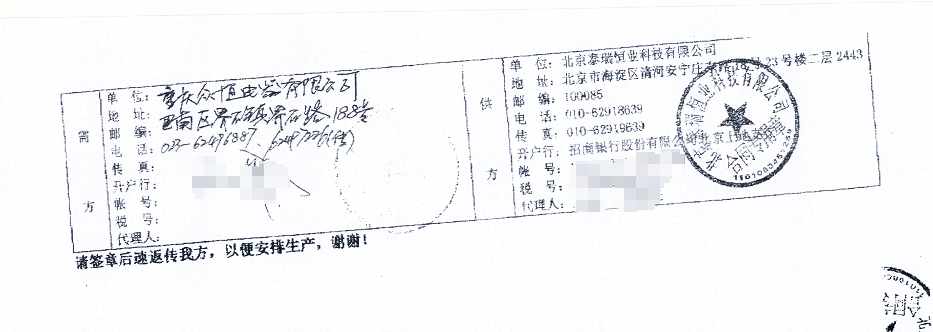 需方
单 位: 重庆众恒电器有限公司
地 址: 巴南区界石镇界石路188号
邮 编:
电 话: 023-62496887
传 真:
开户行:
帐 号:
税 号:
代理人:
供方
单 位: 北京泰瑞恒业科技有限公司
地 址: 北京市海淀区清河安宁庄 23号楼二层2443
邮 编: 100085
电 话: 010-62918639
传 真: 010-62919639
开户行: 招商银行股份有限公司
帐 号:
税 号:
代理人:
科技有限公司
合同专用章
请签章后速返传我方，以便安排生产，谢谢！